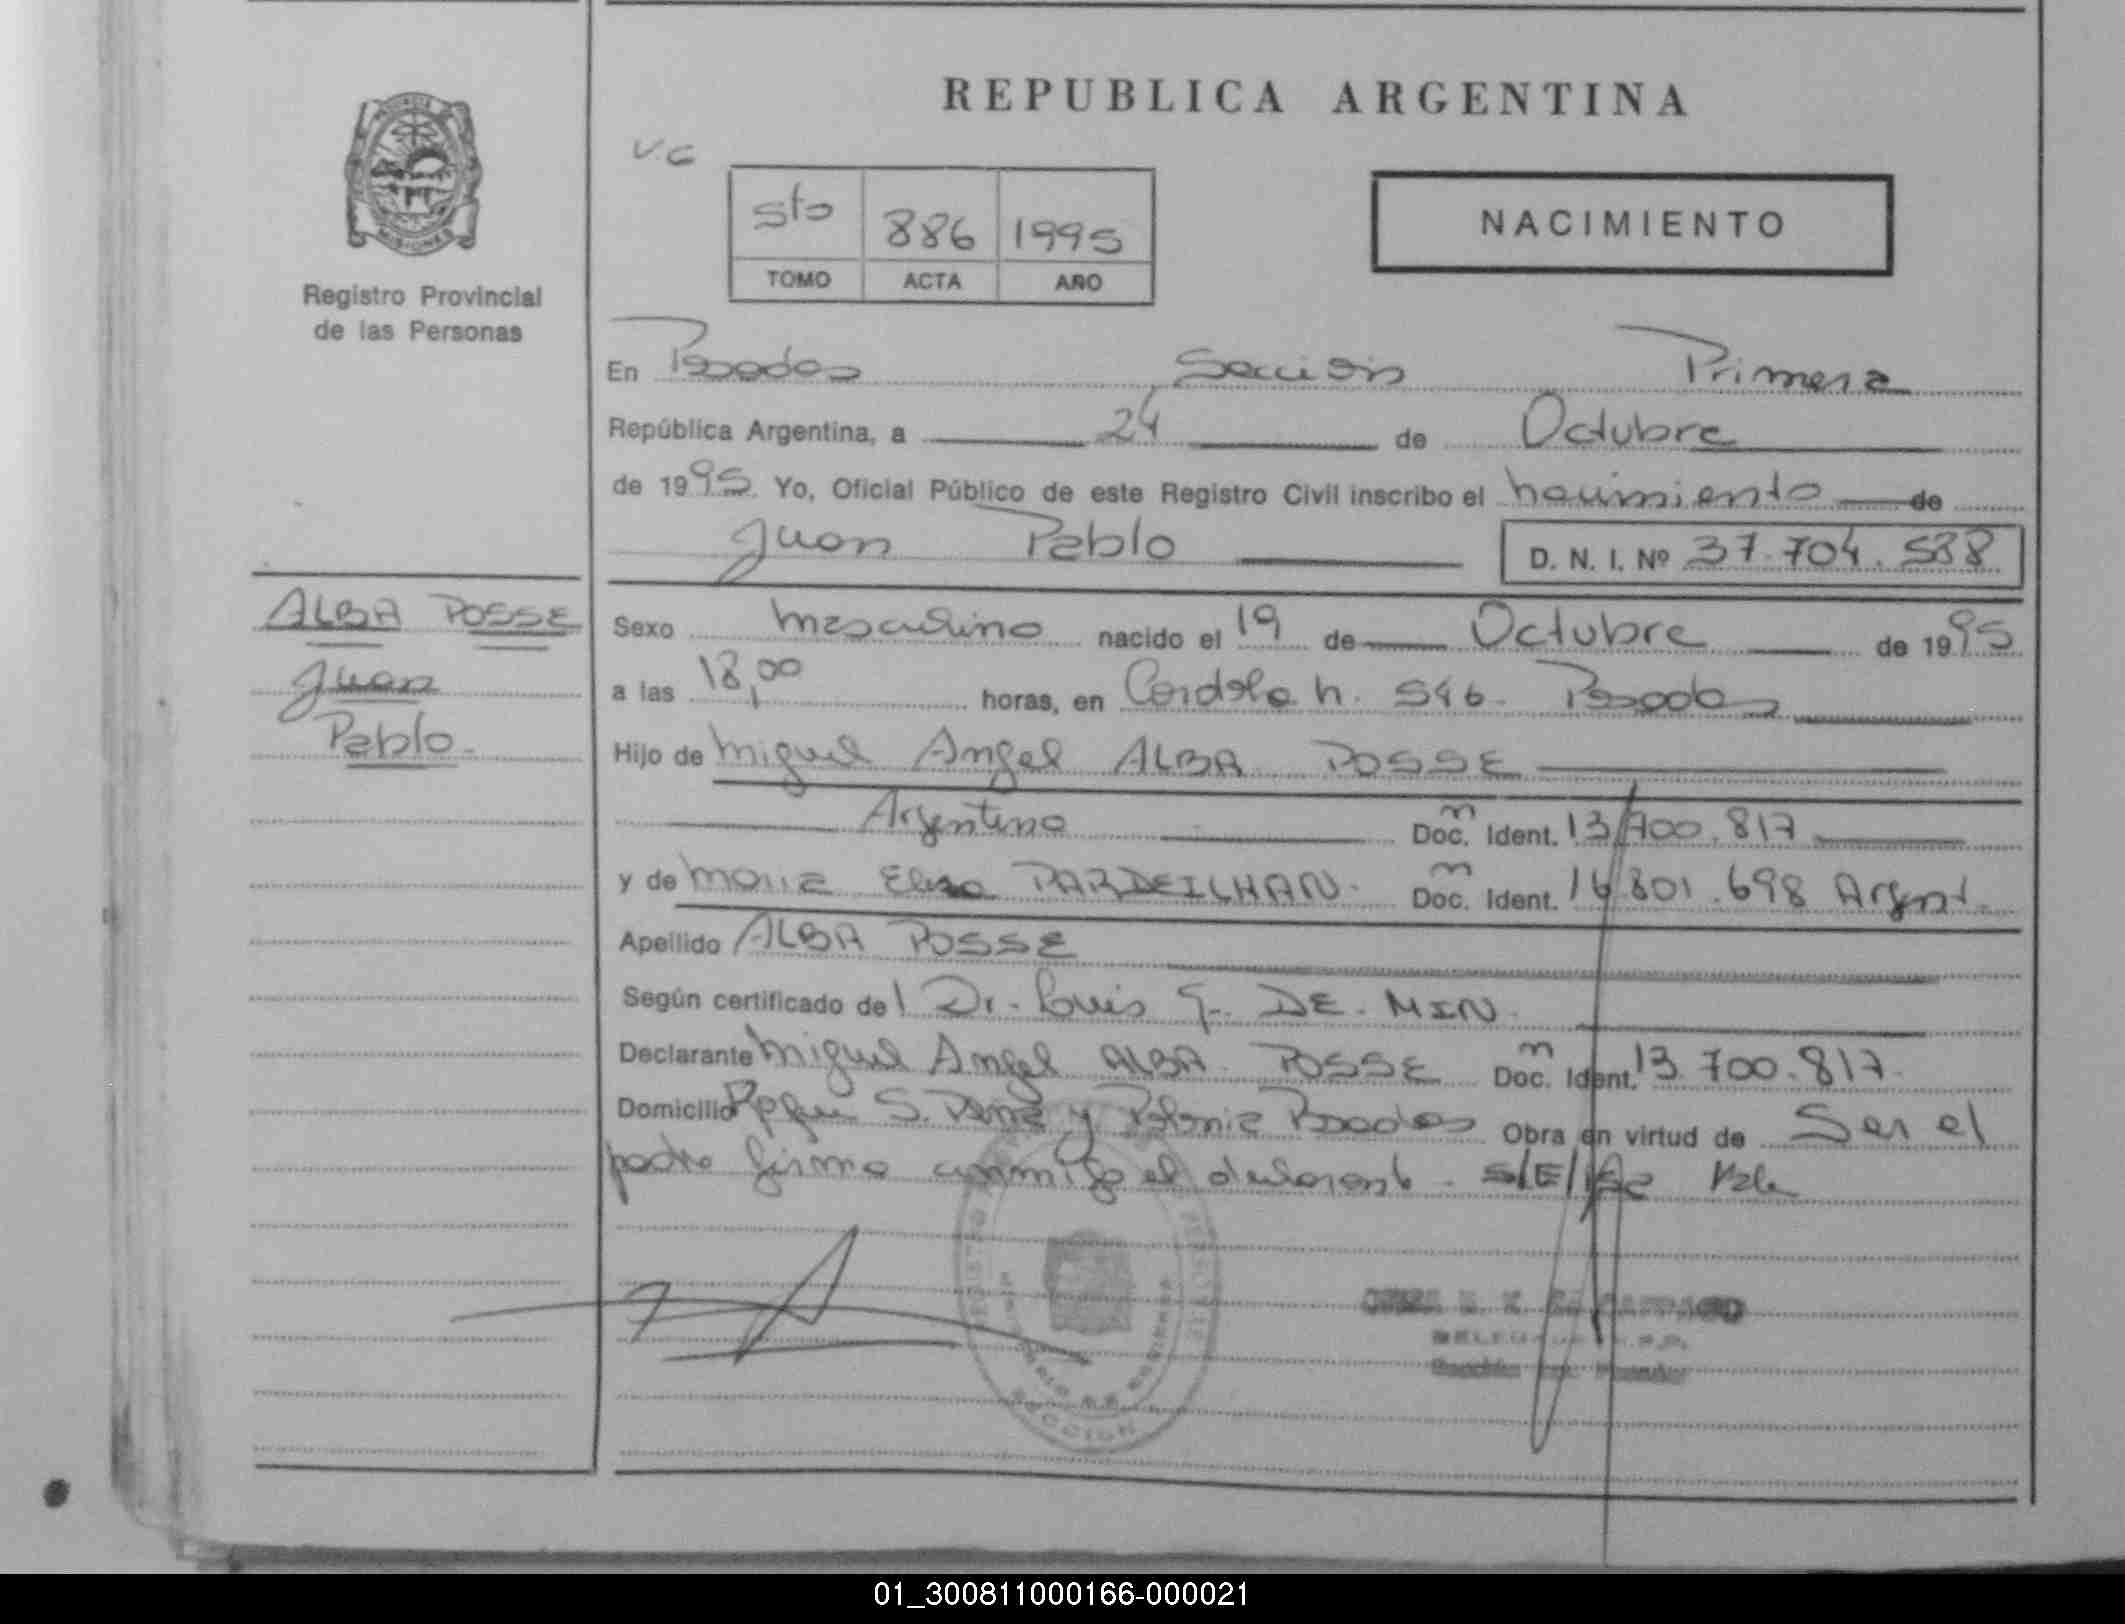 REPUBLICA ARGENTINA
V.C
5to 886 1995
TOMO ACTA AÑO
NACIMIENTO
MISIONES
Registro Provincial
de las Personas
En Posadas Sección Primera
República Argentina, a 24 de Octubre
de 1995. Yo, Oficial Público de este Registro Civil inscribo el nacimiento de
Juan Pablo D. N. I. Nº 37.704.538
ALBA POSSE
Juan
Pablo.
Sexo masculino nacido el 19 de Octubre de 1995
a las 18,00 horas, en Córdoba n. 546. Posadas
Hijo de Miguel Angel ALBA POSSE
Argentino Doc. Ident. 13.700.817
y de Maria Elisa PARDEILHAN. Doc. Ident. 16.801.698 Argent.
Apellido ALBA POSSE
Según certificado del Dr. Luis G. DE. MIN.
Declarante Miguel Angel ALBA POSSE Doc. Ident. 13.700.817.
Domicilio S. Peña y Polonia Posadas Obra en virtud de Ser el
padre firma conmigo el declarante. Vale
SECCION
01_300811000166-000021